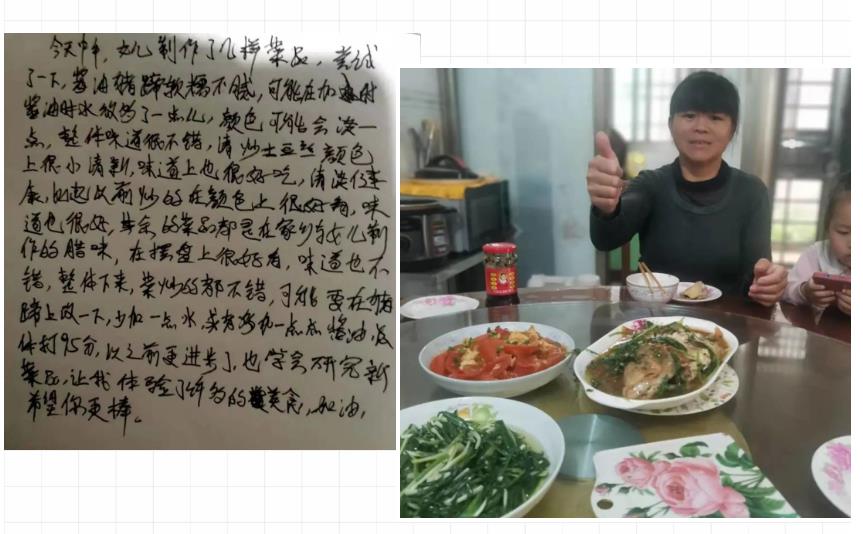 今天中午，女儿制作了几样菜品，尝试
了一下，酱油猪蹄软糯不腻，可能在加
酱油时水放多了一点儿，颜色可能会淡一
点，整体味道很不错，清炒土豆丝颜色
上很小清新，味道上也很好吃，清淡健
康，比起以前炒的在颜色上很好看，味
道也很好，其余的菜品都是在家乡与女儿制
作的腊味，在摆盘上很好看，味道也不
错，整体下来，菜炒的都不错，可能要在猪
蹄上改一下，少加一点水，或者多加一点点酱油，总
体打95分，比之前更进步了，也学会研究新
菜品，让我体验了许多的美食，加油，
希望你更棒。